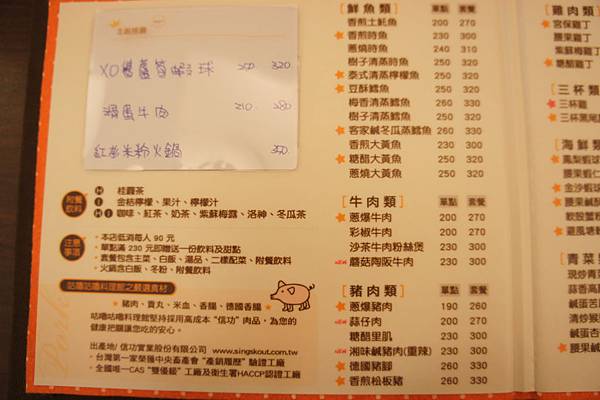 主廚推薦
XO醬蘆筍蝦球 250 320
滑蛋牛肉 210 280
米粉火鍋 350
附餐飲料
H 桂圓茶
I 金桔檸檬、果汁、檸檬汁
H I 咖啡、紅茶、奶茶、紫蘇梅露、洛神、冬瓜茶
注意事項
・本店低消每人 90 元
・單點滿 230 元即贈送一份飲料及甜點
・套餐包含主菜、白飯、湯品、二樣配菜、附餐飲料
・火鍋含白飯、冬粉、附餐飲料
咕嚕咕嚕料理館之嚴選食材
★豬肉、貢丸、米血、香腸、德國香腸★
咕嚕咕嚕料理館堅持採用高成本“信功”肉品，為您的
健康把關讓您吃的安心。
出產地/信功實業股份有限公司 www.singskout.com.tw
・台灣第一家榮獲中央畜產會“產銷履歷”驗證工廠
・全國唯一CAS“雙優級”工廠及衛生署HACCP認證工廠
Pork
[鮮魚類] 單點 套餐
香煎土魠魚 200 270
★香煎時魚 230 300
蔥燒時魚 240 310
樹子清蒸時魚 250 320
★泰式清蒸檸檬魚 250 320
★豆酥鱈魚 250 320
梅香清蒸鱈魚 260 330
樹子清蒸鱈魚 260 330
★客家鹹冬瓜蒸鱈魚 260 330
香煎大黃魚 250 320
★糖醋大黃魚 250 320
蔥燒大黃魚 250 320
[牛肉類] 單點 套餐
★蔥爆牛肉 200 270
彩椒牛肉 200 270
沙茶牛肉粉絲煲 230 300
NEW 蘑菇陶阪牛肉 230 300
[豬肉類] 單點 套餐
★蔥爆豬肉 190 260
NEW 蒜仔肉 200 270
糖醋里肌 230 300
NEW 湘味鹹豬肉(重辣) 230 300
★德國豬腳 260 330
★香煎松板豬 260 330
[雞肉類]
★宮保雞丁
腰果雞丁
紫蘇梅雞丁
★糖醋雞丁
[三杯類]
三杯雞
★三杯黑尾
[海鮮類]
★鳳梨蝦球
腰果蝦仁
★金沙蝦球
腰果鹹酥
軟殼蟹
★避風塘
[青菜
現炒青
蒜香高麗
鹹蛋苦
清炒
鹹蛋杏
★腰果鹹